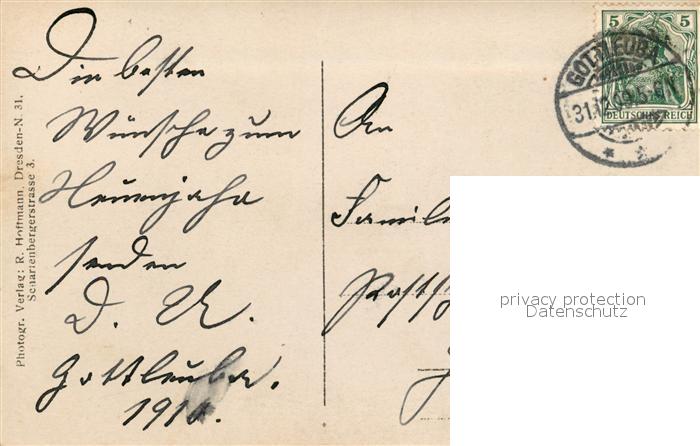 Photogr. Verlag: R. Hoffmann, Dresden-N. 31,
Scharfenbergerstrasse 3.
Die besten
Wünsche zum
Neuenjahr
senden
D. U.
Gottleuba.
1910.
An
Famil
5 5
DEUTSCHES REICH
GOTTLEUBA
31.12.09.5-6N
privacy protection
Datenschutz